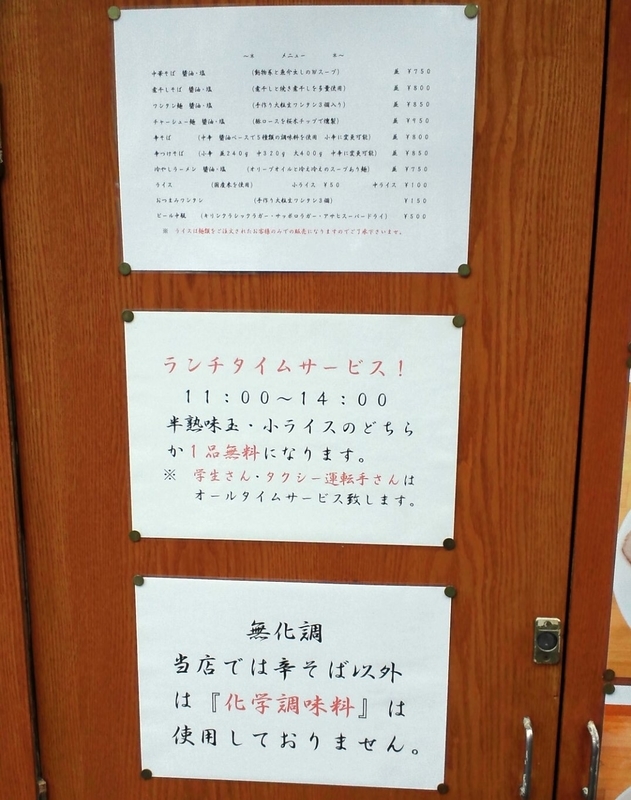 ～＊ メニュー ＊～
中華そば 醤油・塩 (動物系と魚介出しのWスープ) 並 ￥７５０
煮干しそば 醤油・塩 (煮干しと焼き煮干しを多量使用) 並 ￥８００
ワンタン麺 醤油・塩 (手作り大粒生ワンタン５個入り) 並 ￥８５０
チャーシュー麺 醤油・塩 (豚ロースを桜木チップで燻製) 並 ￥９５０
辛そば (中辛 醤油ベースで５種類の調味料を使用 小辛に変更可能) 並 ￥８００
辛つけそば (小辛 並２４０ｇ 中３２０ｇ 大４００ｇ 中辛に変更可能) 並 ￥８５０
冷やしラーメン 醤油・塩 (オリーブオイルと冷え冷えのスープあり麺) 並 ￥７５０
ライス (国産米を使用) 小ライス ￥５０ 中ライス ￥１００
おつまみワンタン (手作り大粒生ワンタン５個) ￥１５０
ビール中瓶 (キリンクラシックラガー・サッポロラガー・アサヒスーパードライ) ￥５００
※ ライスは麺類をご注文されたお客様のみでの販売になりますのでご了承下さいませ。
ランチタイムサービス！
１１：００～１４：００
半熟味玉・小ライスのどちら
か１品無料になります。
※ 学生さん・タクシー運転手さんは
オールタイムサービス致します。
無化調
当店では辛そば以外
は『化学調味料』は
使用しておりません。